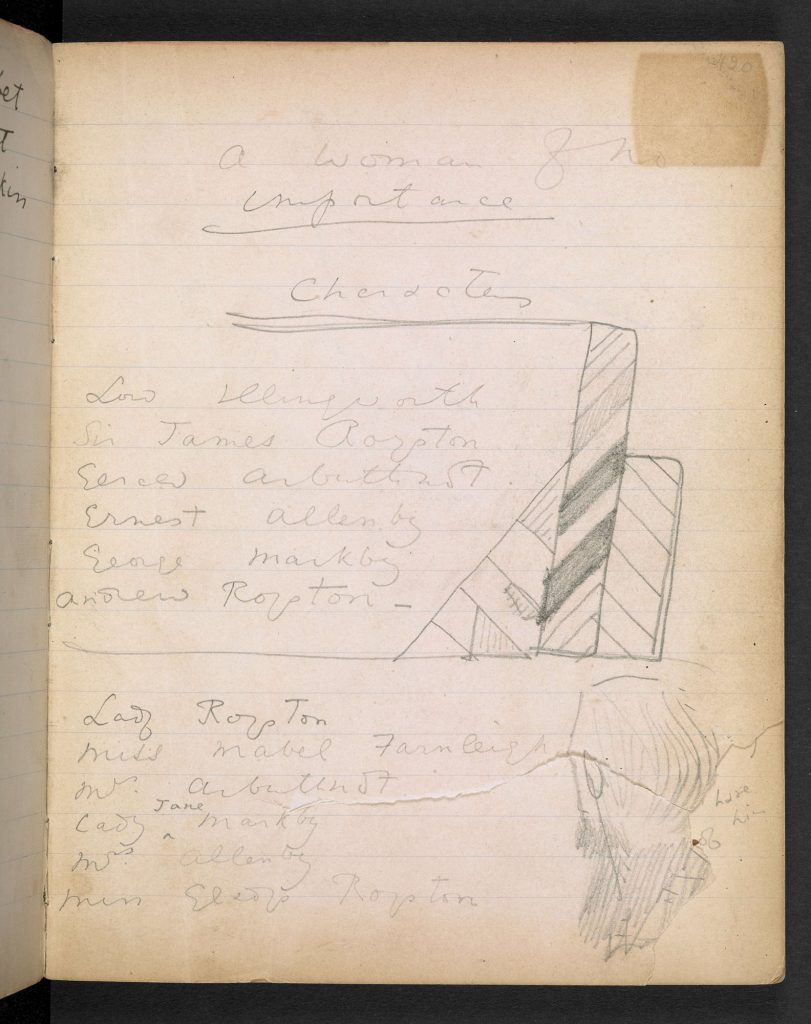 et
A Woman of No
importance
Characters
Lord Illingworth
Sir James Royston
Gerard Arbuthnot.
Ernest Allenby
George Markby
Andrew Royston -
Lady Royston
Miss Mabel Farnleigh
Mrs. Arbuthnot
Jane
Lady ^ Markby
Mrs Allenby
Miss Gladys Royston